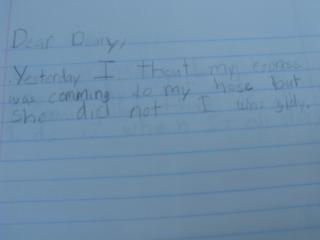 Dear Deary,
. Yesterday I thout my
was comming to my hose but
she did not I was